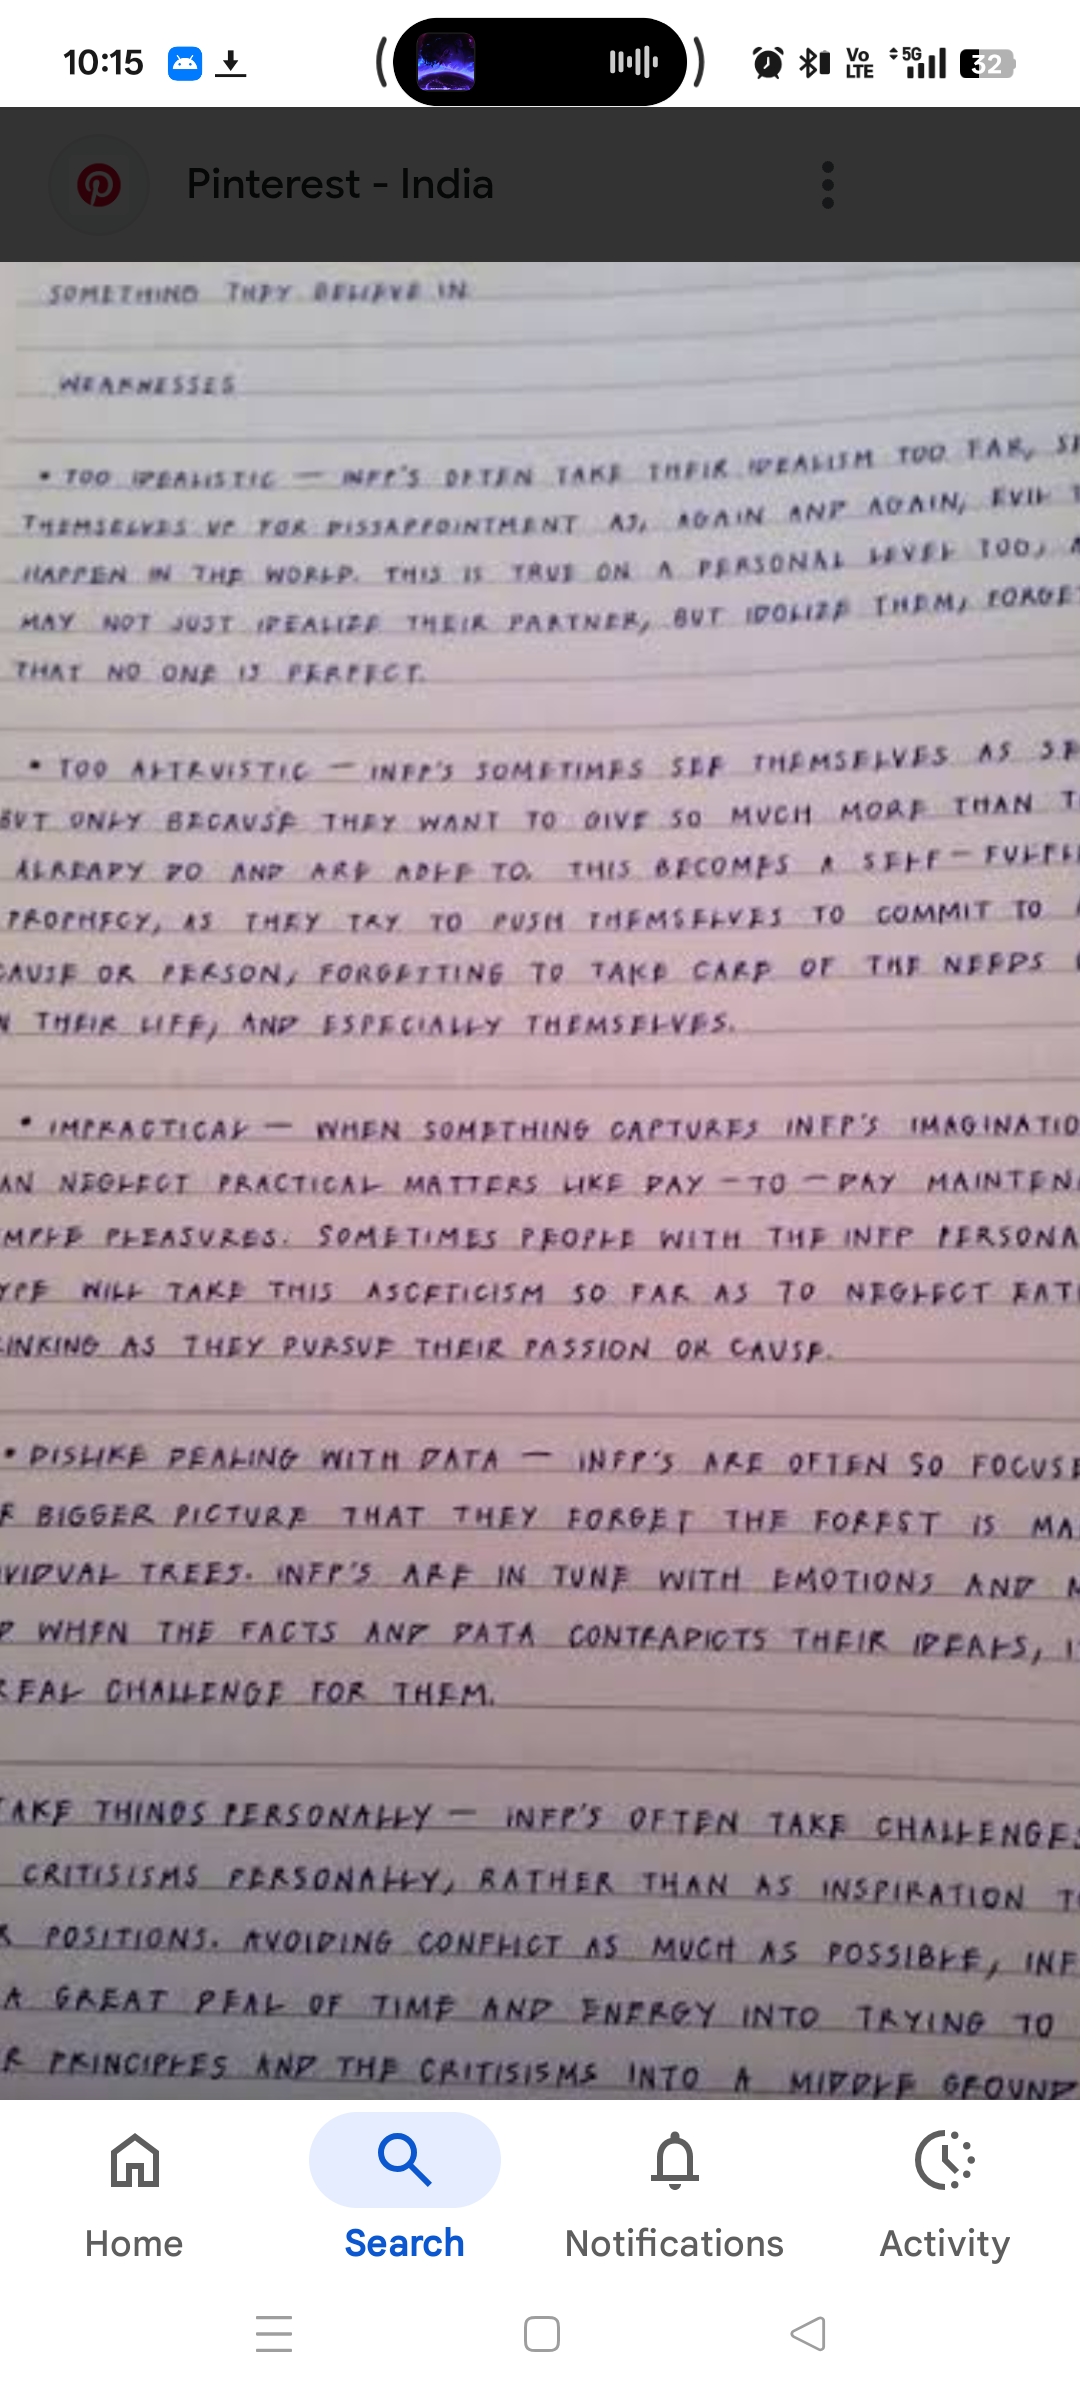 10:15
Vo
LTE
5G
32
Pinterest - India
SOMETHING THEY BELIEVE IN
WEAKNESSES
• TOO IDEALISTIC — INFP'S OFTEN TAKE THEIR IDEALISM TOO FAR,
THEMSELVES UP FOR DISSAPPOINTMENT AS, AGAIN AND AGAIN, EVIL
HAPPEN IN THE WORLD. THIS IS TRUE ON A PERSONAL LEVEL TOO,
MAY NOT JUST IDEALIZE THEIR PARTNER, BUT IDOLIZE THEM, FORGET
THAT NO ONE IS PERFECT.
• TOO ALTRUISTIC — INFP'S SOMETIMES SEE THEMSELVES AS SE
BUT ONLY BECAUSE THEY WANT TO GIVE SO MUCH MORE THAN T
ALREADY DO AND ARE ABLE TO. THIS BECOMES A SELF-FULFIL
PROPHECY, AS THEY TRY TO PUSH THEMSELVES TO COMMIT TO
CAUSE OR PERSON, FORGETTING TO TAKE CARE OF THE NEEDS
N THEIR LIFE, AND ESPECIALLY THEMSELVES.
• IMPRACTICAL — WHEN SOMETHING CAPTURES INFP'S IMAGINATIO
AN NEGLECT PRACTICAL MATTERS LIKE DAY-TO-DAY MAINTEN
MPLE PLEASURES. SOMETIMES PEOPLE WITH THE INFP PERSONA
YPE WILL TAKE THIS ASCETICISM SO FAR AS TO NEGLECT EATI
INKING AS THEY PURSUE THEIR PASSION OR CAUSE.
• DISLIKE DEALING WITH DATA — INFP'S ARE OFTEN SO FOCUSE
E BIGGER PICTURE THAT THEY FORGET THE FOREST IS MA
VIDUAL TREES. INFP'S ARE IN TUNE WITH EMOTIONS AND M
D WHEN THE FACTS AND DATA CONTRADICTS THEIR IDEALS, I
REAL CHALLENGE FOR THEM.
TAKE THINGS PERSONALLY — INFP'S OFTEN TAKE CHALLENGES
CRITISISMS PERSONALLY, RATHER THAN AS INSPIRATION TO
R POSITIONS. AVOIDING CONFLICT AS MUCH AS POSSIBLE, INF
A GREAT DEAL OF TIME AND ENERGY INTO TRYING TO
R PRINCIPLES AND THE CRITISISMS INTO A MIDDLE GROUND
Home
Search
Notifications
Activity